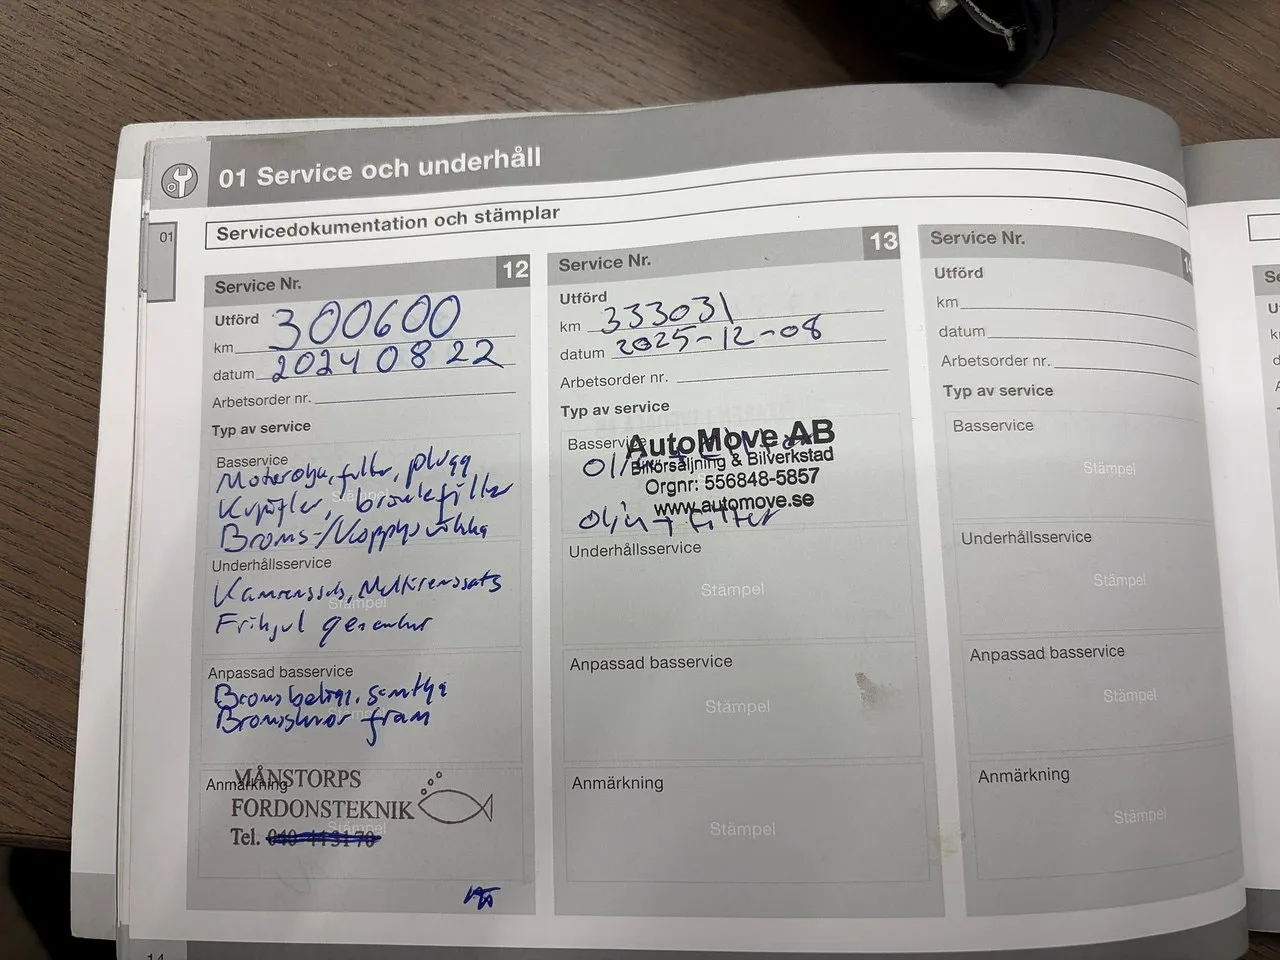 01 Service och underhåll
01
Servicedokumentation och stämplar
Service Nr. 12
Utförd
km 300600
datum 20240822
Arbetsorder nr.
Typ av service
Basservice
Motorolja, filter, plugg
Stämpel
Kupéfilter, bränslefilter
Broms-/Kopplingsvätska
Underhållsservice
Kamremssats, Multiremssats
Stämpel
Frihjul generator
Anpassad basservice
Bromsbelägg. samtliga
Stämpel
Bromsskivor fram
Anmärkning
MÅNSTORPS
FORDONSTEKNIK
Stämpel
Tel.
Service Nr. 13
Utförd
km 333031
datum 2025-12-08
Arbetsorder nr.
Typ av service
Basservice
AutoMove AB
Bilförsäljning & Bilverkstad
Orgnr: 556848-5857
www.automove.se
Olja + Filter
Underhållsservice
Stämpel
Anpassad basservice
Stämpel
Anmärkning
Stämpel
Service Nr.
Utförd
km
datum
Arbetsorder nr.
Typ av service
Basservice
Stämpel
Underhållsservice
Stämpel
Anpassad basservice
Stämpel
Anmärkning
Stämpel
14